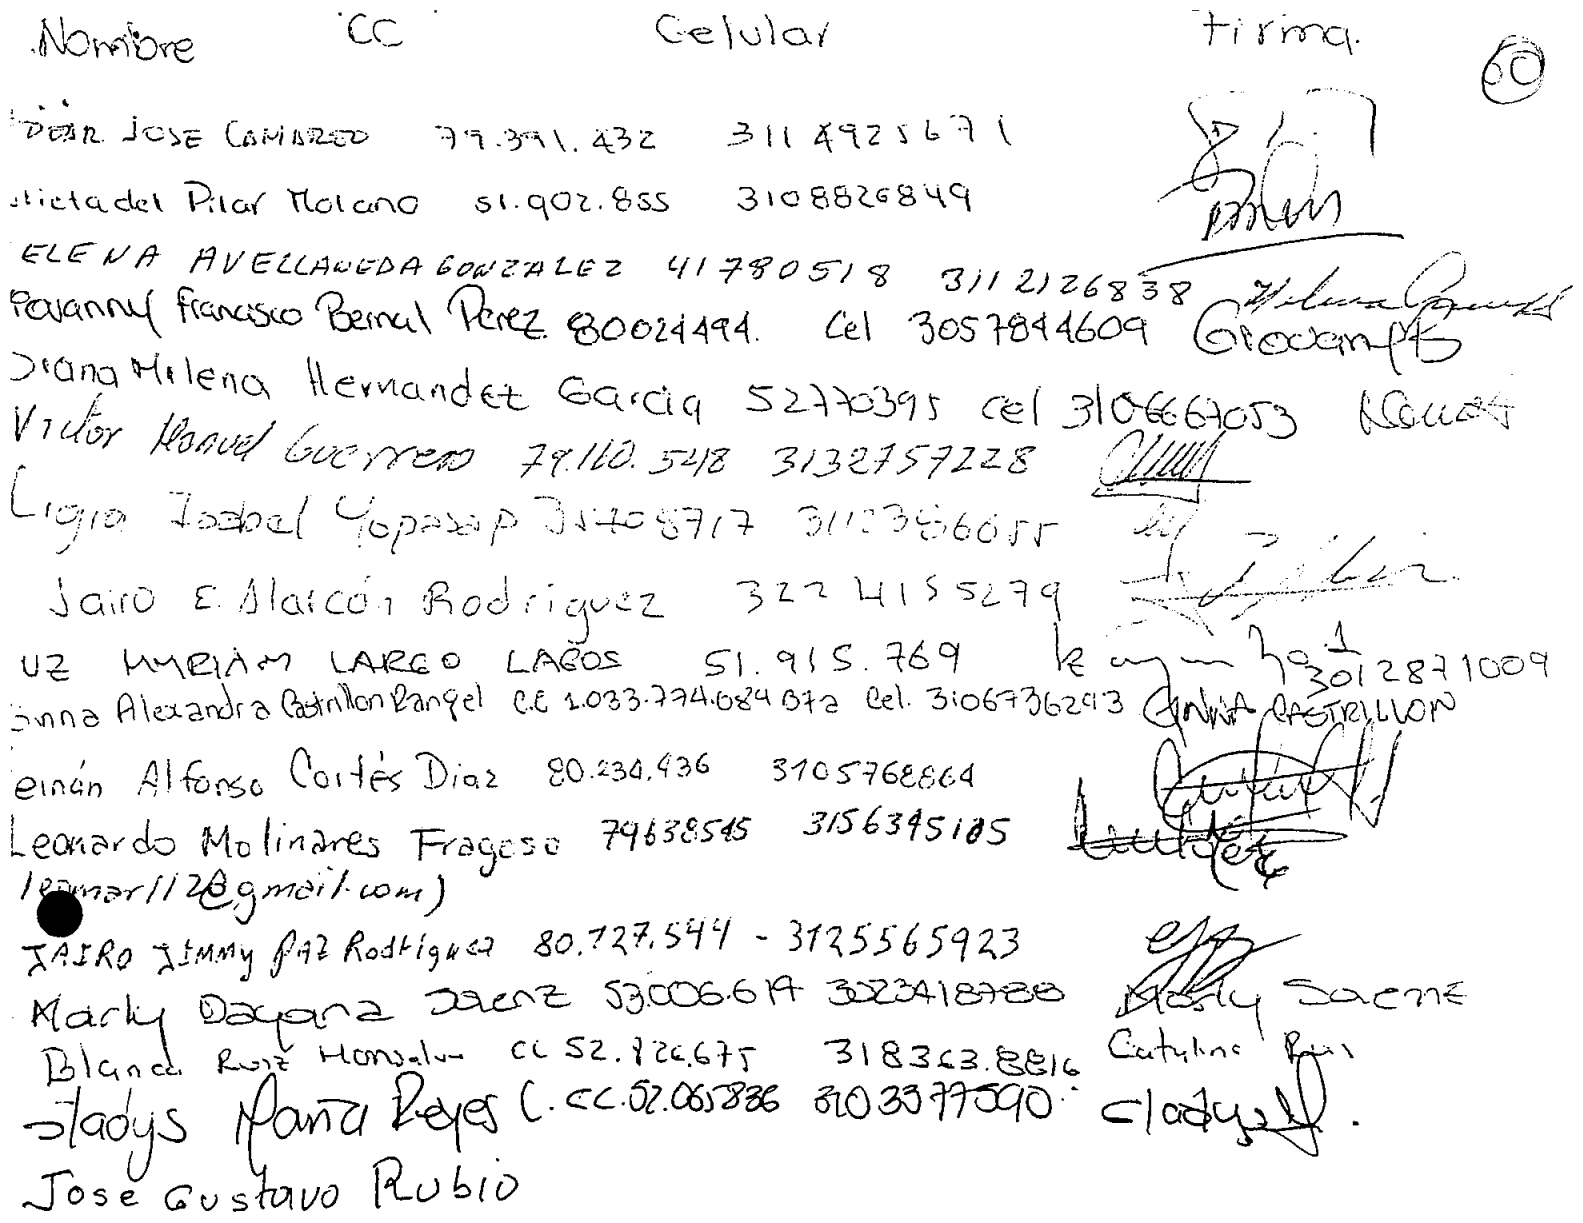 Nombre CC Celular Firma.
60
JOSE CAMARGO 79.391.432 311 4925671
del Pilar Molano 51.902.855 3108826849
ELENA AVELLANEDA GONZALEZ 41780518 3112126838
Francisco Bernal Perez 80024494. Cel 3057844609
Diana Milena Hernandez Garcia 52770395 cel 3106667053
Victor Manuel Guerrero 79.110.548 3132757228
Ligia Isabel
Jairo E. Alarcón Rodriguez 322 4155279
UZ MYRIAM LARGO LAGOS 51.915.769
3012871009
Alexandra Castrillon Rangel C.C 1.033.774.084 Bta Cel. 3106736293 CASTRILLON
ernán Alfonso Cortés Diaz 80.234.936 3105768864
Leonardo Molinares Fragoso 79638545 3156345185
@gmail.com)
JAIRO JIMMY PAZ Rodriguez 80.727.544 - 3125565923
Marly Dayana Saenz 53.006.617 3023418788 Marly Saenz
Blanca Ruiz CC 318363.8816 Ruiz
Gladys Maria Reyes C. CC.52.065836 3103377590. Gladys
Jose Gustavo Rubio